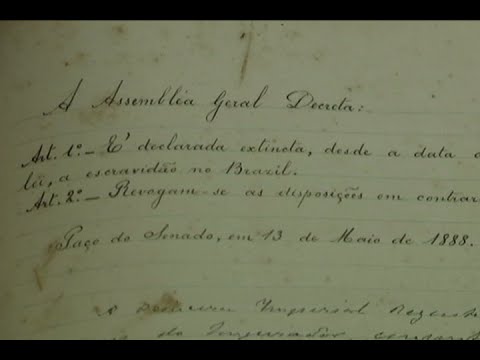 A Assembléa Geral Decreta:
Art. 1º. – E' declarada extincta, desde a data d
lei, a escravidão no Brazil.
Art. 2º. – Revogam-se as disposições em contrar
Paço do Senado, em 13 de Maio de 1888.
A Princeza Imperial Regente
do Imperador